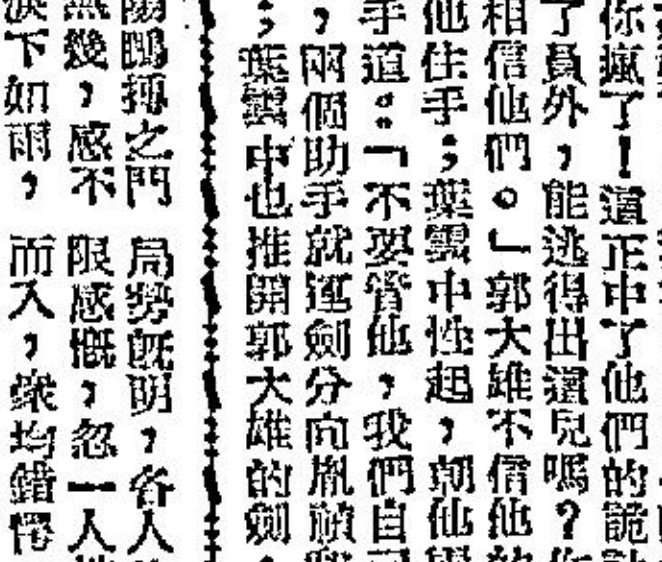 你瘋了！這正中了他們的詭
了員外，能逃得出這兒嗎？你
相信他們。」郭大雄不信他的
他住手；葉雲中性起，朝他
手道：「不要管他，我們自
，兩個助手就運劍分向胤禎
；葉雲中也推開郭大雄的劍，
陽鵬摶之門　局勢既明，各人
無幾，感不　限感慨，忽一人
淚下如雨，　而入，眾均錯愕